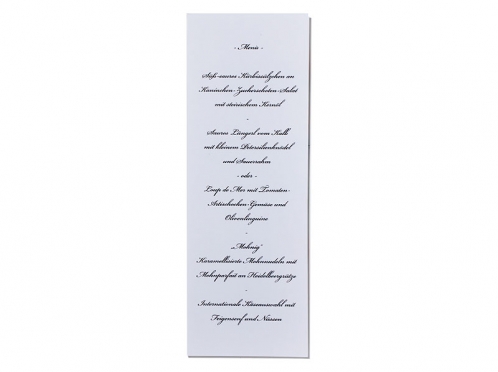 - Menü -
Süß-saures Kürbissülzchen an
Kaninchen-Zuckerschoten-Salat
mit steirischem Kernöl
-
Saures Lüngerl vom Kalb
mit kleinem Petersilienknödel
und Sauerrahm
- oder -
Loup de Mer mit Tomaten-
Artischocken-Gemüse und
Olivenlinguine
-
„Mohnig"
Karamellisierte Mohnnudeln mit
Mohnparfait an Heidelbeergrütze
-
Internationale Käseauswahl mit
Feigensenf und Nüssen